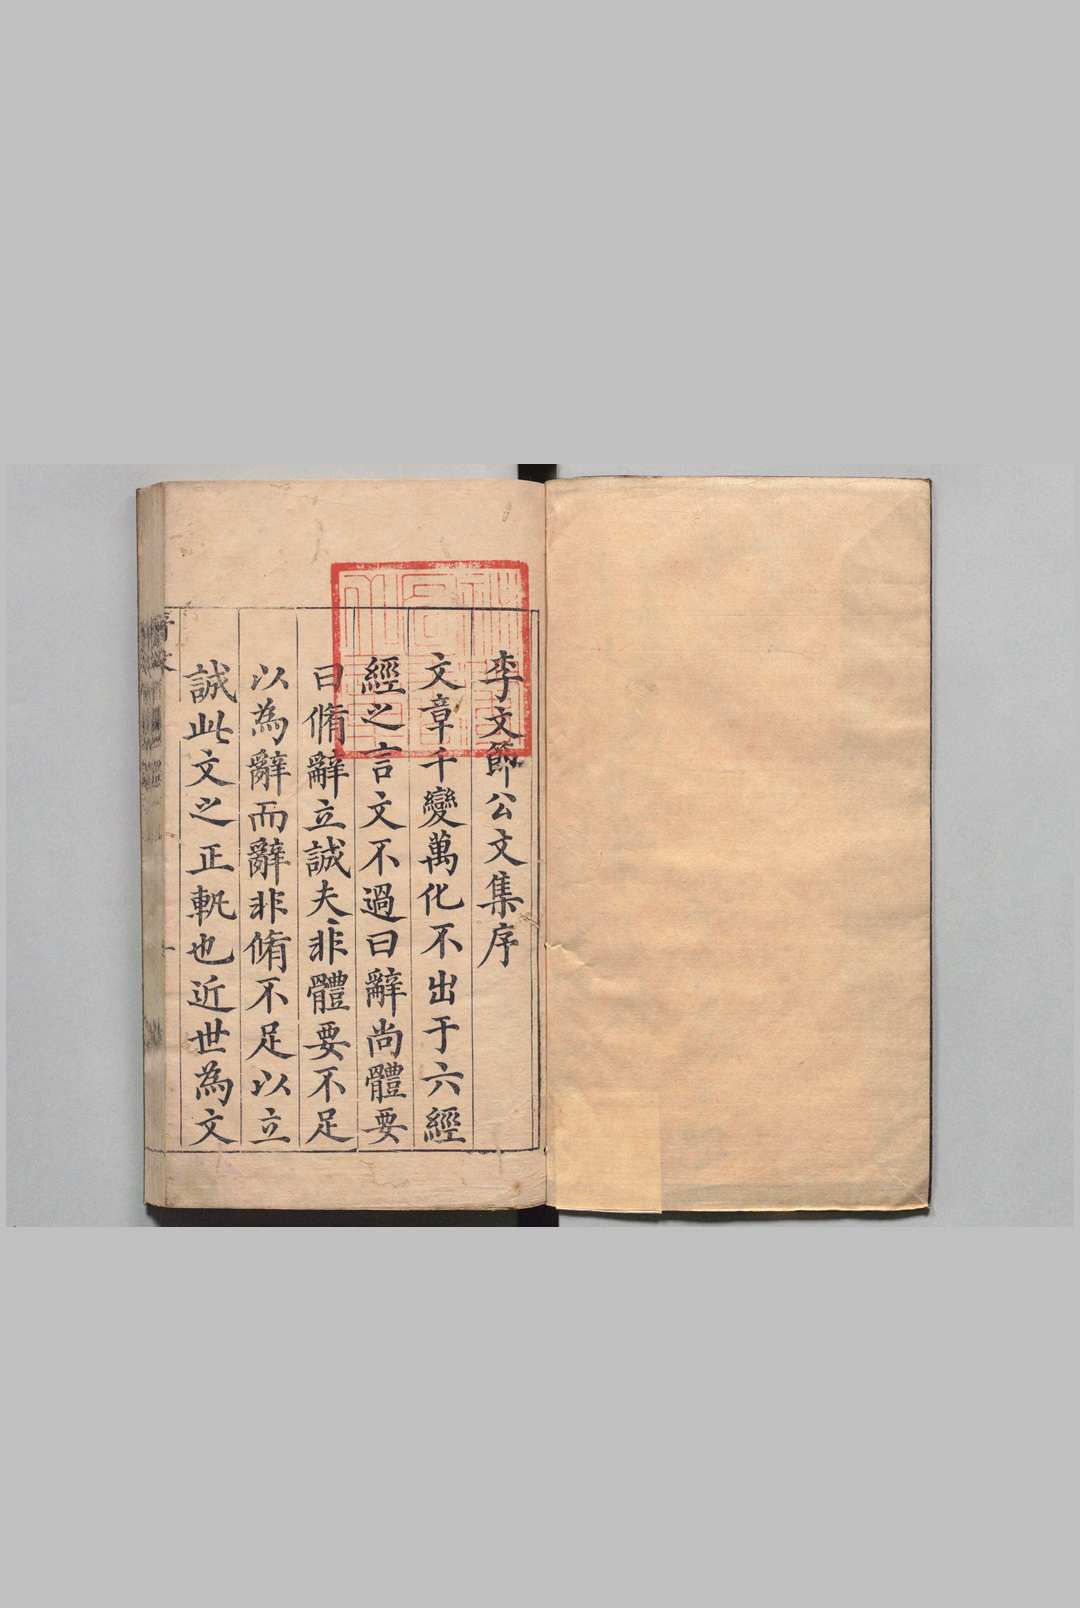 李文節公文集序
文章千變萬化不出于六經
經之言文不過曰辭尚體要
曰脩辭立誠夫非體要不足
以為辭而辭非脩不足以立
誠此文之正軌也近世為文